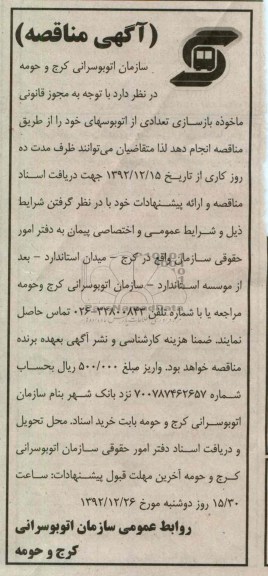 (آگهی مناقصه)
سازمان اتوبوسرانی کرج و حومه
در نظر دارد با توجه به مجوز قانونی
ماخوذه بازسازی تعدادی از اتوبوسهای خود را از طریق
مناقصه انجام دهد لذا متقاضیان می‌توانند ظرف مدت ده
روز کاری از تاریخ ۱۳۹۲/۱۲/۱۵ جهت دریافت اسناد
مناقصه و ارائه پیشنهادات خود با در نظر گرفتن شرایط
ذیل و شرایط عمومی و اختصاصی پیمان به دفتر امور
حقوقی سازمان واقع در کرج - میدان استاندارد - بعد
از موسسه استاندارد - سازمان اتوبوسرانی کرج وحومه
مراجعه یا با شماره تلفن ۳۲۸۰۰۸۴۳-۰۲۶ تماس حاصل
نمایند. ضمنا هزینه کارشناسی و نشر آگهی بعهده برنده
مناقصه خواهد بود. واریز مبلغ ۵۰۰/۰۰۰ ریال بحساب
شماره ۷۰۰۷۸۷۴۶۲۶۵۷ نزد بانک شهر بنام سازمان
اتوبوسرانی کرج و حومه بابت خرید اسناد. محل تحویل
و دریافت اسناد دفتر امور حقوقی سازمان اتوبوسرانی
کرج و حومه آخرین مهلت قبول پیشنهادات: ساعت
۱۵/۳۰ روز دوشنبه مورخ ۱۳۹۲/۱۲/۲۶
روابط عمومی سازمان اتوبوسرانی
کرج و حومه